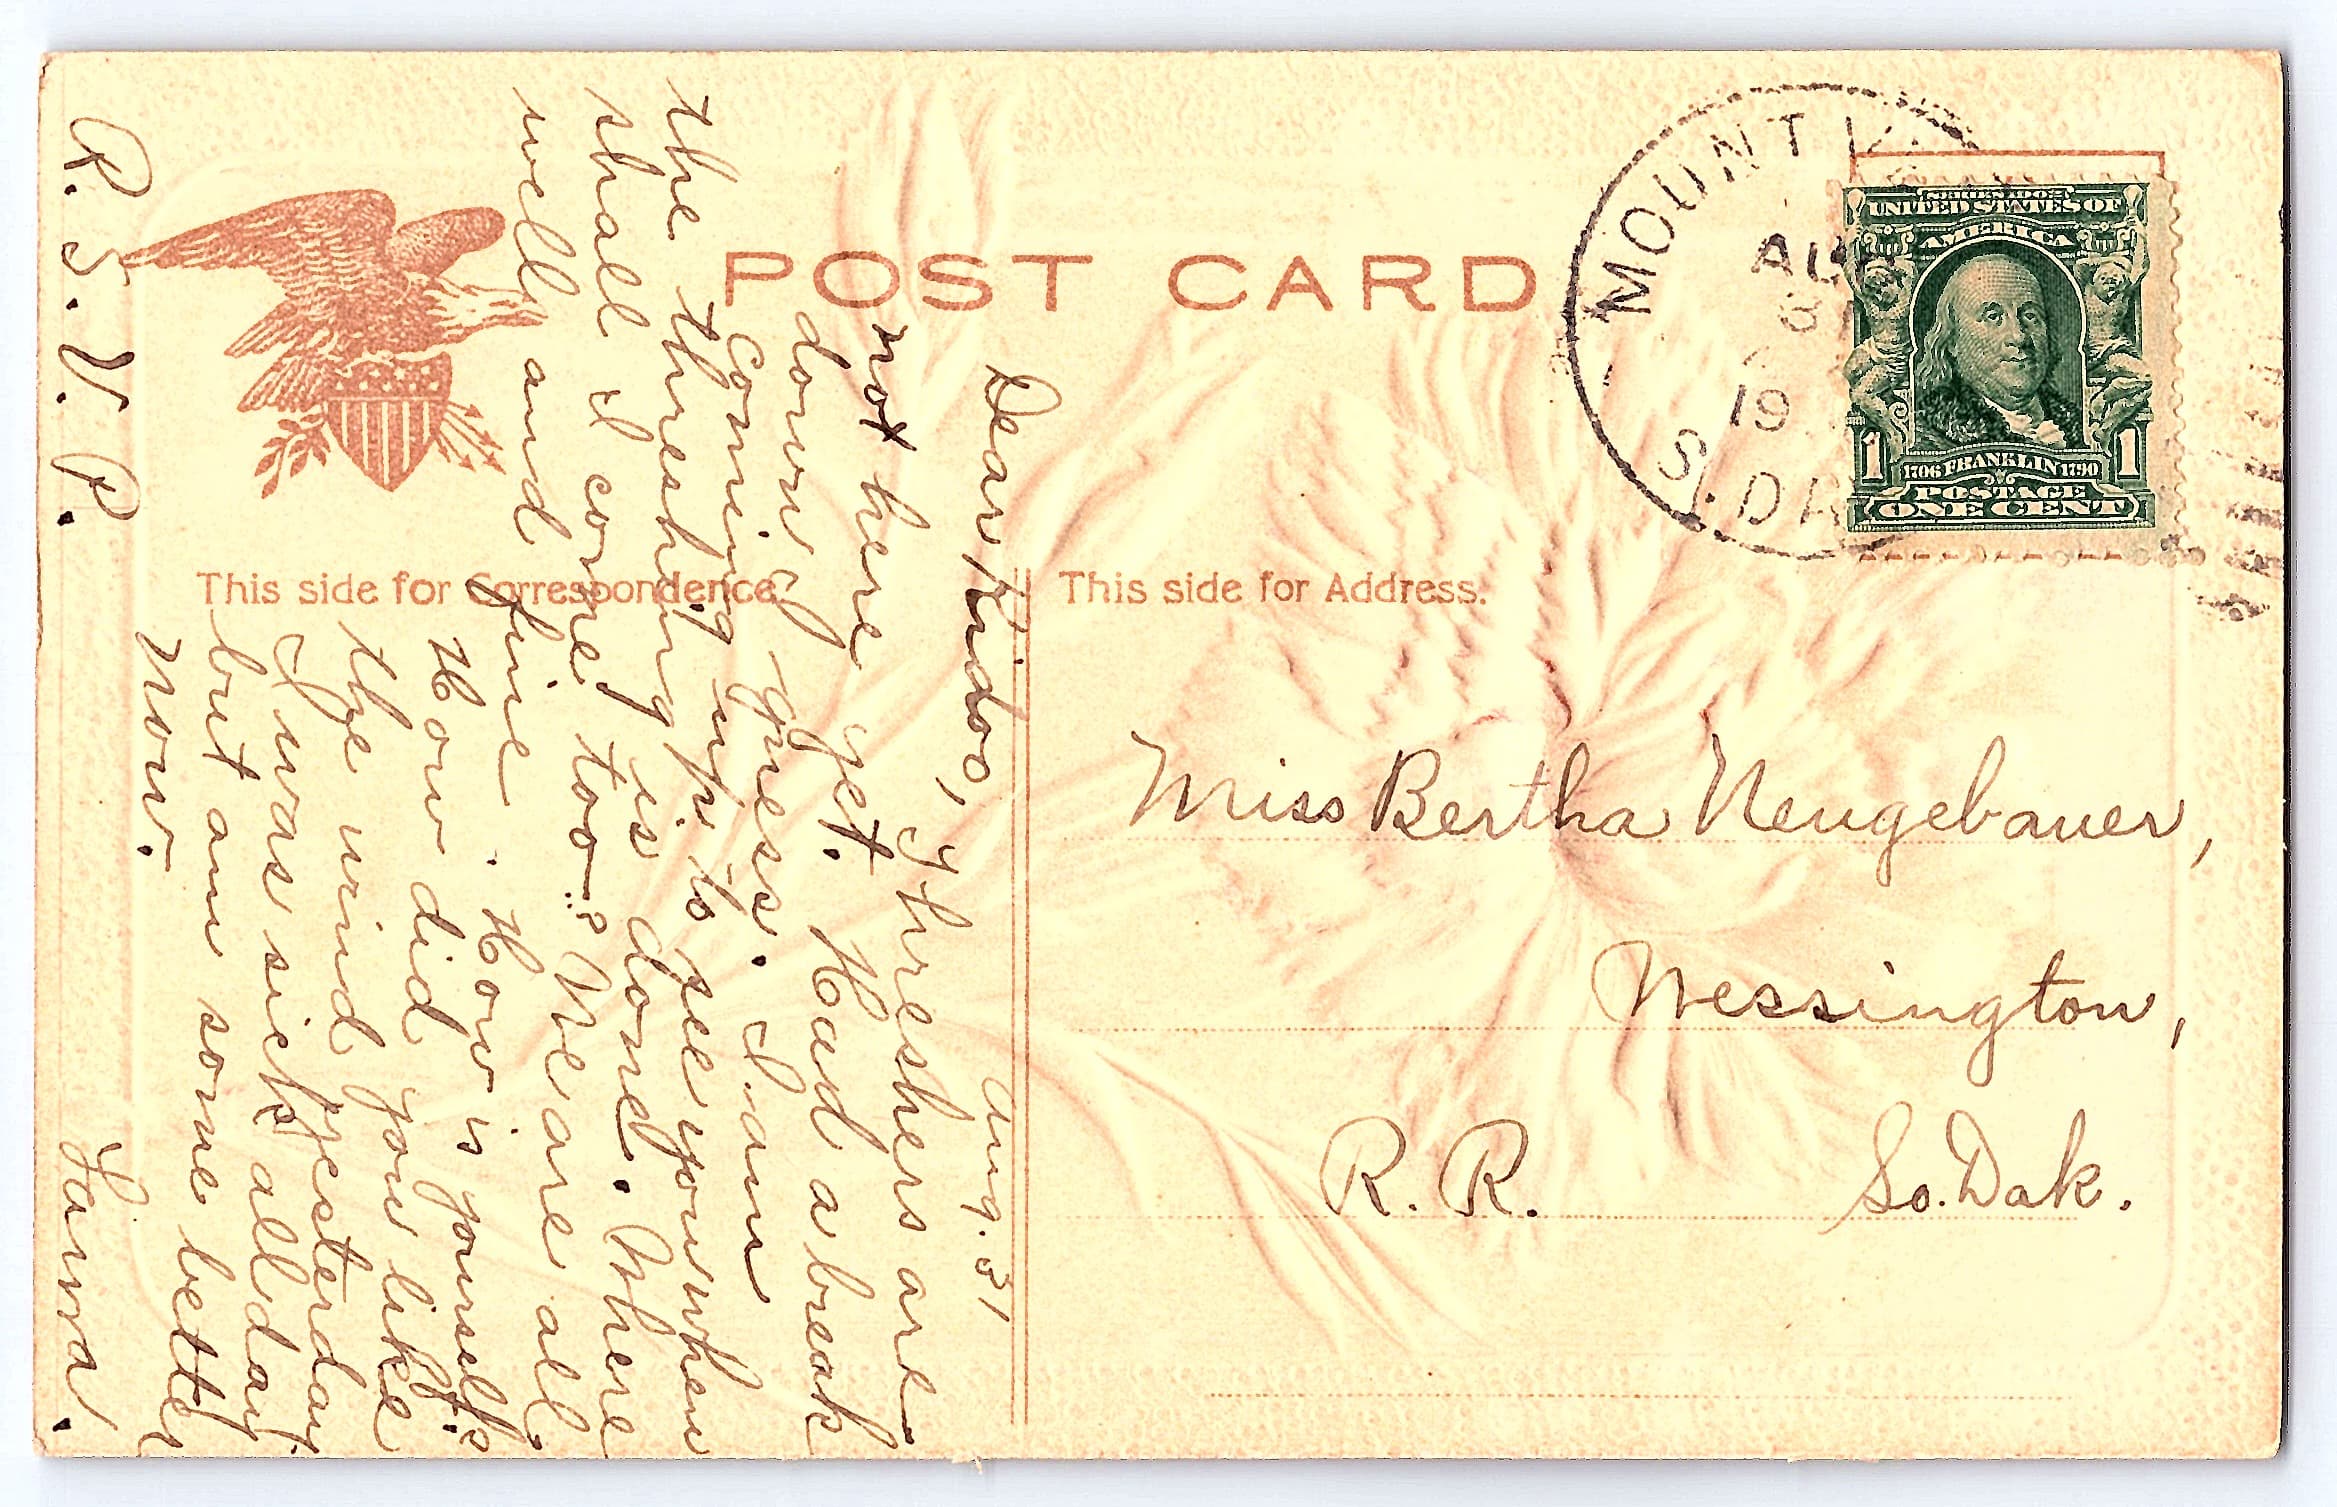 POST CARD
This side for Correspondence.
This side for Address.
MOUNT V
AU
3
19
S. DA
SERIES 1902
UNITED STATES OF
AMERICA
1 1
1706 FRANKLIN 1790
POSTAGE
ONE CENT
Aug. 31
Dear Kidoo,
Threshers are
not here yet. Had a break
down I guess. I am
coming up to see you when
the threshing is done. Where
shall I come too? We are all
well and fine. How is yourself?
How did you like
the wind yesterday
I was sick all day
but am some better
now.
R. S. V. P. Laura.
Miss Bertha Neugebauer,
Wessington,
R. R. So. Dak.